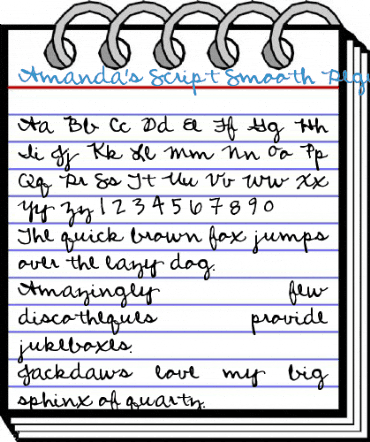 Amanda's Script Smooth Reg
Aa Bb Cc Dd Ee Ff Gg Hh
Ii Jj Kk Ll Mm Nn Oo Pp
Qq Rr Ss Tt Uu Vv Ww Xx
Yy Zz 1 2 3 4 5 6 7 8 9 0
The quick brown fox jumps
over the lazy dog.
Amazingly few
discotheques provide
jukeboxes.
Jackdaws love my big
sphinx of quartz.